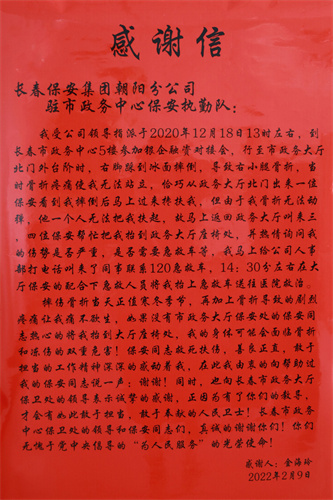 感谢信
长春保安集团朝阳分公司
驻市政务中心保安执勤队：
我受公司领导指派于2020年12月18日13时左右，到
长春市政务中心5楼参加银企融资对接会，行至市政务大厅
北门外台阶时，右脚踩到冰面摔倒，导致右小腿骨折，当
时骨折疼痛使我无法站立，恰巧从政务大厅北门出来一位
保安看到我摔倒后马上过来搀扶我，但由于骨折无法动
弹，他一个人无法把我扶起，故马上返回政务大厅叫来三
、四位保安帮忙把我抬到政务大厅座椅处，并热情询问我
的伤势是否严重，是否需要急救车等，我马上给公司人事
部打电话叫来了同事联系120急救车，14：30分左右在大
厅保安的配合下急救人员将我抬上急救车送往医院救治。
摔伤骨折当天正值寒冬季节，再加上骨折导致的剧烈
疼痛让我痛不欲生，如果没有市政务大厅保安处的保安同
志热心的将我抬到大厅座椅处，我的身体可能会面临骨折
和冻伤的双重危害！保安同志救死扶伤，善良正直，敢于
担当的工作精神深深的感动着我，在此我由衷的向帮助过
我的保安同志说一声：谢谢！同时，也向长春市政务大厅
保卫处的领导表示诚挚的感谢，正因为有了你们的教导，
才会有如此敢于担当，敢于奉献的人民卫士！长春市政务
中心保卫处的领导和保安同志们，真诚的谢谢你们！你们
无愧于党中央倡导的“为人民服务”的光荣使命！
感谢人：金海玲
2022年2月9日